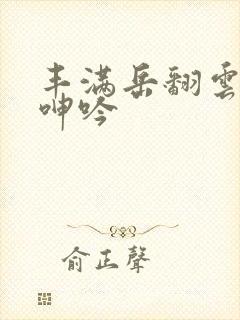 丰满岳翻雲
呻吟
俞正聲